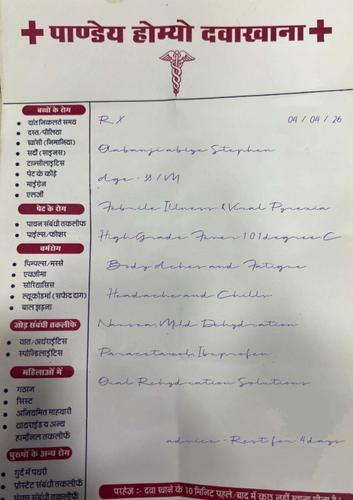 पाण्डेय होम्यो दवाखाना
बच्चों के रोग
दांत निकलते समय
दस्त/पोलियो
खांसी (निमोनिया)
सर्दी (साइनस)
टान्सीलाइटिस
पेट के कीड़े
माईग्रेन
एलर्जी
पेट के रोग
पाचन संबंधी तकलीफ
पाईल्स/फीशर
चर्मरोग
पिम्पल्स/मस्से
एक्जीमा
सोरियासिस
ल्यूकोडर्मा (सफेद दाग)
बाल झड़ना
जोड़ संबंधी तकलीफें
वात/अर्थराईटिस
स्पोन्डिलाईटिस
महिलाओं में
गठान
सिस्ट
अनियमित माहवारी
थायराईड व अन्य
हार्मोनल तकलीफें
पुरुषों के अन्य रोग
गुर्दे में पथरी
प्रोस्टेट संबंधी तकलीफें
RX 04/04/26
Stephen
Age - 38/M
Febrile Illness & Viral Pyrexia
High Grade Fever 101 degree C
Body Aches and Fatigue
Headache and Chills
Nausea, Mild Dehydration
Paracetamol, Ibuprofen
Oral Rehydration Solutions
advice - Rest for 4 days
परहेज :- दवा खाने के 10 मिनिट पहले/बाद में कुछ नहीं खाना पीना है।